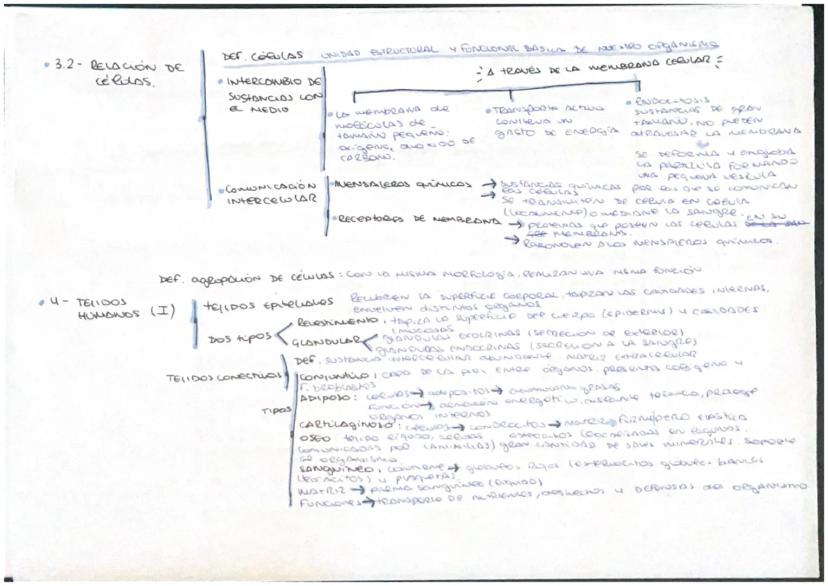 DEF. CÉLULAS UNIDAD ESTRUCTURAL Y FUNCIONAL BÁSICA DE NUESTRO ORGANISMO
• 3.2- RELACIÓN DE CÉLULAS.
A TRAVÉS DE LA MEMBRANA CELULAR:
• INTERCAMBIO DE SUSTANCIAS CON EL MEDIO
• LA membrana de moléculas de tamaño pequeño: oxígeno, DIOXIDO DE CARBONO.
• TRANSPORTE ACTIVO CONLLEVA UN GASTO DE ENERGÍA
• ENDOCITOSIS SUSTANCIAS DE GRAN TAMAÑO. NO PUEDEN ATRAVESAR LA MEMBRANA
SE DEFORMA Y ENGLOBA LA PARTÍCULA FORMANDO UNA PEQUEÑA VESÍCULA
• COMUNICACIÓN INTERCELULAR
• MENSAJEROS QUÍMICOS → SUSTANCIAS QUÍMICAS POR LAS QUE SE COMUNICAN LAS CÉLULAS
SE TRANSMITEN DE CÉLULA EN CÉLULA (LOCALMENTE) O MEDIANTE LA SANGRE.
• RECEPTORES DE MEMBRANA → PROTEINAS QUE POSEEN LAS CÉLULAS EN SU MEMBRANA.
→ RECONOCEN A LOS MENSAJEROS QUÍMICOS.
DEF. agrupación DE CÉLULAS: CON LA MISMA MORFOLOGÍA, REALIZAN UNA MISMA FUNCIÓN
• 4- TEJIDOS HUMANOS (I)
TEJIDOS EPITELIALES RECUBREN LA SUPERFICIE CORPORAL, TAPIZAN LAS CAVIDADES INTERNAS,
ENVUELVEN DISTINTOS ÓRGANOS
DOS TIPOS
Revestimiento: tapiza la superficie del cuerpo (epidermis) y CAVIDADES (mucosas)
GLANDULAR
GLÁNDULAS EXOCRINAS (SECRECIÓN AL EXTERIOR)
GLÁNDULAS ENDOCRINAS (SECRECIÓN A LA SANGRE)
TEJIDOS CONECTIVOS
DEF. SUSTANCIA INTERCELULAR abundante. MATRIZ EXTRACELULAR
TIPOS
CONJUNTIVO: CAPA DE LA PIEL ENTRE ÓRGANOS. presenta colágeno y
fibroblastos
ADIPOSO: células → adipositos → acumulan grasas
FUNCIÓN → almacén energético, aislante térmico, protege
órganos internos
CARTILAGINOSO: células → condrocitos → matriz elástica
OSEO tejido rígido, células osteocitos
comunicadas por gran cantidad de sales minerales. Soporte
de organismo
SANGUÍNEO: contiene → glóbulos rojos (eritrocitos glóbulos blancos
(leucocitos) y plaquetas
MATRIZ → plasma sanguíneo (líquido)
FUNCIONES → transporte de nutrientes, desechos y DEFENSAS del ORGANISMO